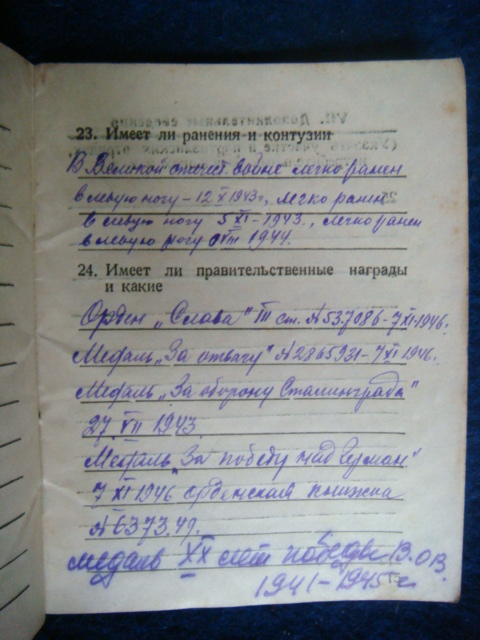 23. Имеет ли ранения и контузии
В Великой отечест. войне легко ранен
в левую ногу – 12 X 1943 г., легко ранен
в левую ногу 5 XI – 1943., легко ранен
в левую ногу VIII 1944.
24. Имеет ли правительственные награды
и какие
Орден „Слава" III ст. № 537086 – 7 XI-1946.
Медаль „За отвагу" № 2865931 – 7 XI 1946.
Медаль „За оборону Сталинграда"
27 VII 1943
Медаль „За победу над Герман"
7 XI-1946 орденская книжка
№ 637349.
медаль XX лет победы В.О.В.
1941–1945 г.